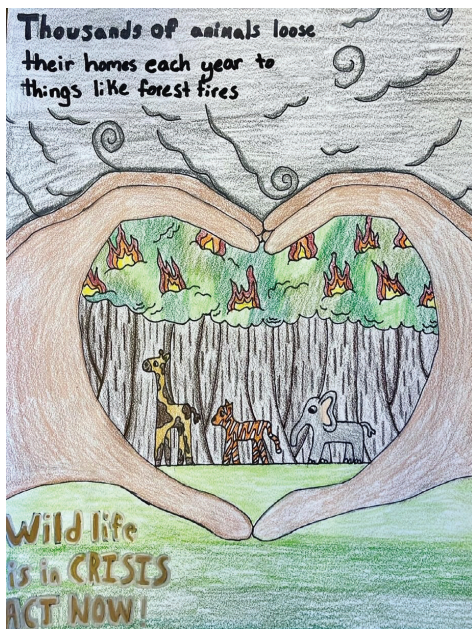 Thousands of animals loose
their homes each year to
things like forest fires
Wild life
is in CRISIS
ACT NOW!